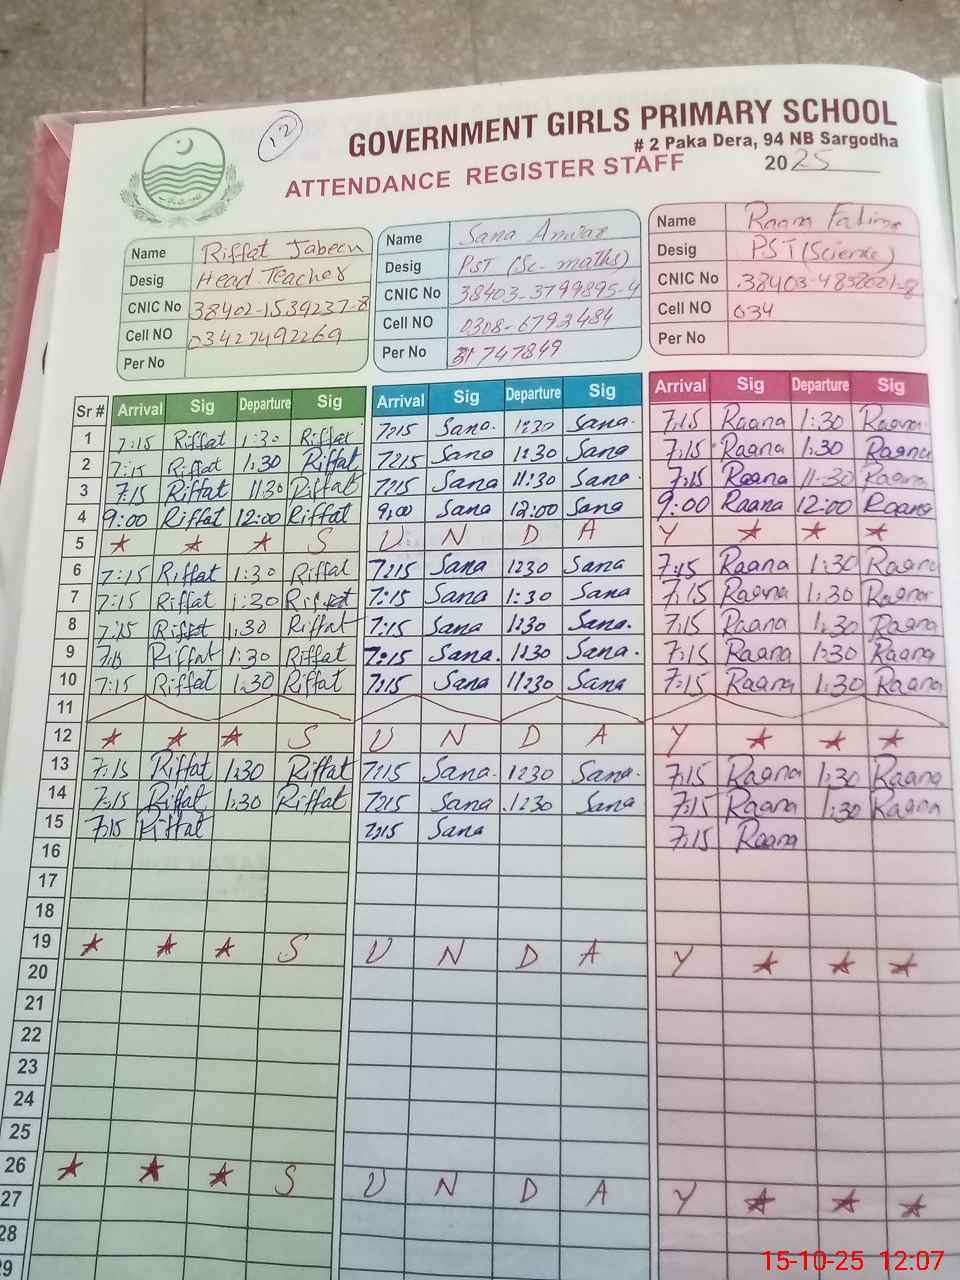 12
GOVERNMENT GIRLS PRIMARY SCHOOL
# 2 Paka Dera, 94 NB Sargodha
ATTENDANCE REGISTER STAFF
2025
Name Riffat Jabeen Name Sana Anwar Name Raana Fatima
Desig Head Teacher Desig PST (Sc-maths) Desig PST (Science)
CNIC No 38402-1539237-8 CNIC No 38403-3799895-4 CNIC No 38403-4858601-8
Cell NO 03427492269 Cell NO 0308-6792484 Cell NO 034
Per No Per No 31747849 Per No
Sr # Arrival Sig Departure Sig Arrival Sig Departure Sig Arrival Sig Departure Sig
1 7:15 Riffat 1:30 Riffat 7:15 Sana. 1:30 Sana. 7:15 Raana 1:30 Raana
2 7:15 Riffat 1:30 Riffat 7:15 Sana 1:30 Sana 7:15 Raana 1:30 Raana
3 7:15 Riffat 11:30 Riffat 7:15 Sana 11:30 Sana. 7:15 Raana 11:30 Raana
4 9:00 Riffat 12:00 Riffat 9:00 Sana 12:00 Sana 9:00 Raana 12:00 Raana
5 ★ ★ ★ S U N D A Y ★ ★ ★
6 7:15 Riffat 1:30 Riffat 7:15 Sana 1:30 Sana 7:15 Raana 1:30 Raana
7 7:15 Riffat 1:30 Riffat 7:15 Sana 1:30 Sana 7:15 Raana 1:30 Raana
8 7:15 Riffat 1:30 Riffat 7:15 Sana 1:30 Sana. 7:15 Raana 1:30 Raana
9 7:15 Riffat 1:30 Riffat 7:15 Sana. 1:30 Sana. 7:15 Raana 1:30 Raana
10 7:15 Riffat 1:30 Riffat 7:15 Sana 11:30 Sana 7:15 Raana 1:30 Raana
11
12 ★ ★ ★ S U N D A Y ★ ★ ★
13 7:15 Riffat 1:30 Riffat 7:15 Sana. 1:30 Sana. 7:15 Raana 1:30 Raana
14 7:15 Riffat 1:30 Riffat 7:15 Sana. 1:30 Sana 7:15 Raana 1:30 Raana
15 7:15 Riffat 7:15 Sana 7:15 Raana
16
17
18
19 ★ ★ ★ S U N D A Y ★ ★ ★
20
21
22
23
24
25
26 ★ ★ ★ S U N D A Y ★ ★ ★
27
28
29
15-10-25 12:07